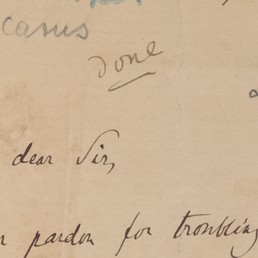 casus
done
dear Sir,
pardon for troubling